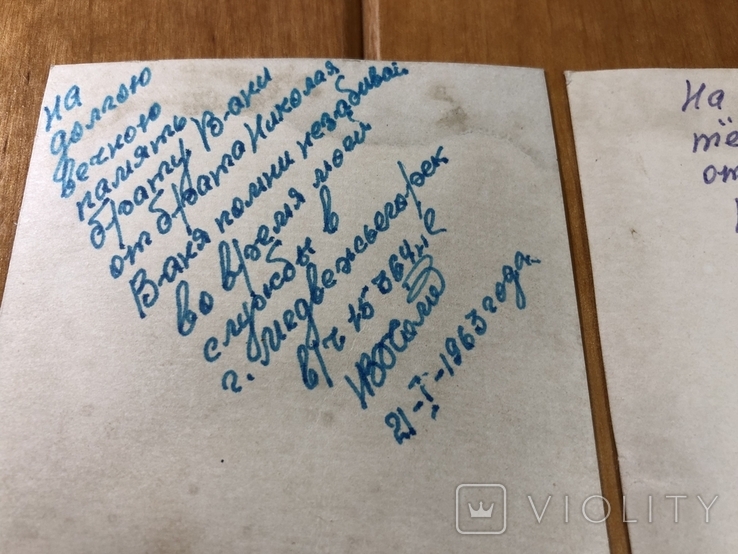 На
долгою
вечною
память
брату Вани
от брата Николая
Ваня помни незабивай
во время моей
службы в
г. Медвежьегорск
в/ч 15 364
21-I-1963 года.
На
от
VIOLITY